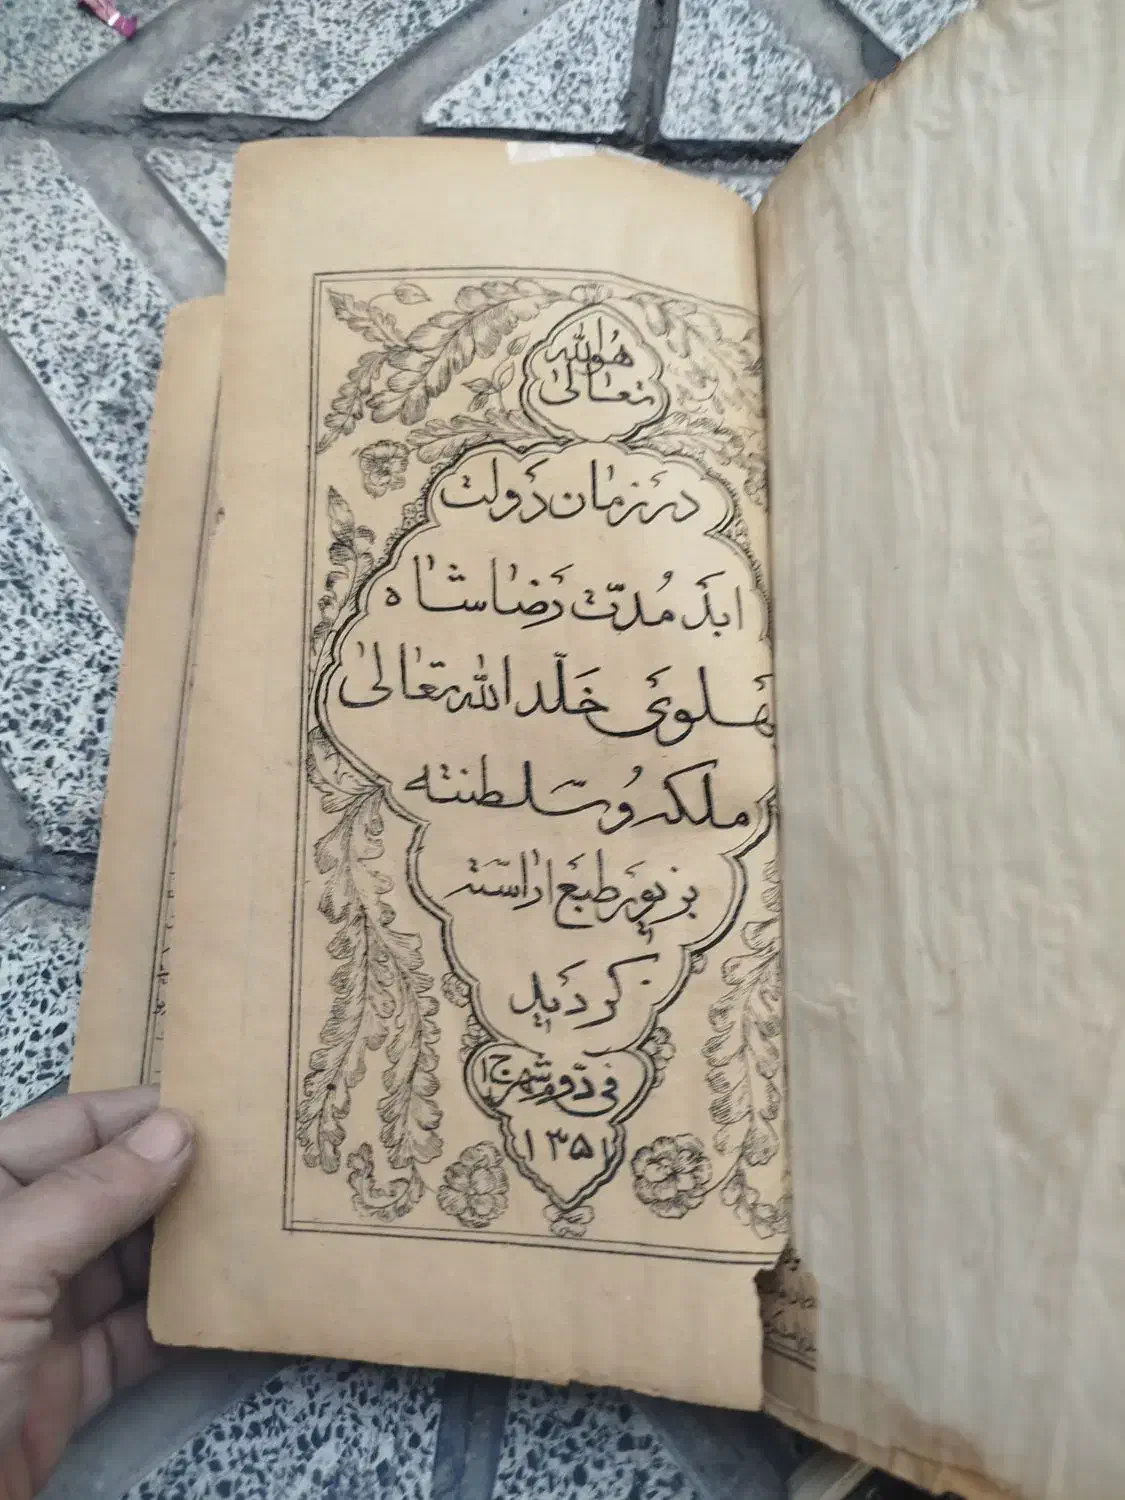 هُوالله
تعالىٰ
در زمان دَولت
ابدَ مُدّت رَضا شاه
پهَلوىَ خَلّد الله تعٰالىٰ
ملكه وُسَلطنته
بزيوَر طبَع اراسَته
كَرديَد
فى دوّم شهر ج ١
١٣٥١